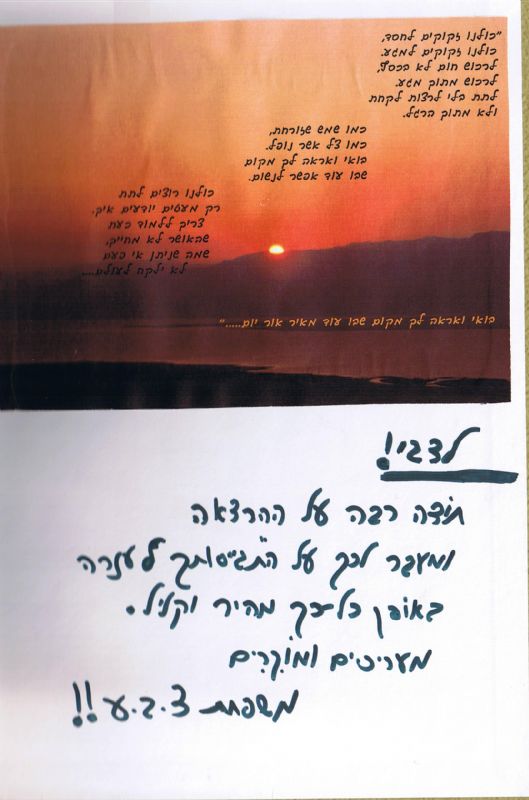 "כולנו זקוקים לחסד,
כולנו זקוקים למגע.
לרכוש חום לא בכסף,
לרכוש מתוך מגע.
לתת בלי לרצות לקחת
ולא מתוך הרגל.
כמו שמש שזורחת,
כמו צל אשר נופל.
בואי ואראה לך מקום
שבו עוד אפשר לנשום.
כולנו רוצים לתת
רק מעטים יודעים איך.
צריך ללמוד כעת
שהאושר לא מחייך,
שמה שניתן אי פעם
לא ילקח לעולם....
בואי ואראה לך מקום שבו עוד מאיר אור יום....."
לצבי!
תודה רבה על ההרצאה
ומעבר לכך על התגייסותך לעזרה
באופן כל-כך מהיר וקליל.
מעריכים ומוקירים
משפחת צ.ב.ע!!